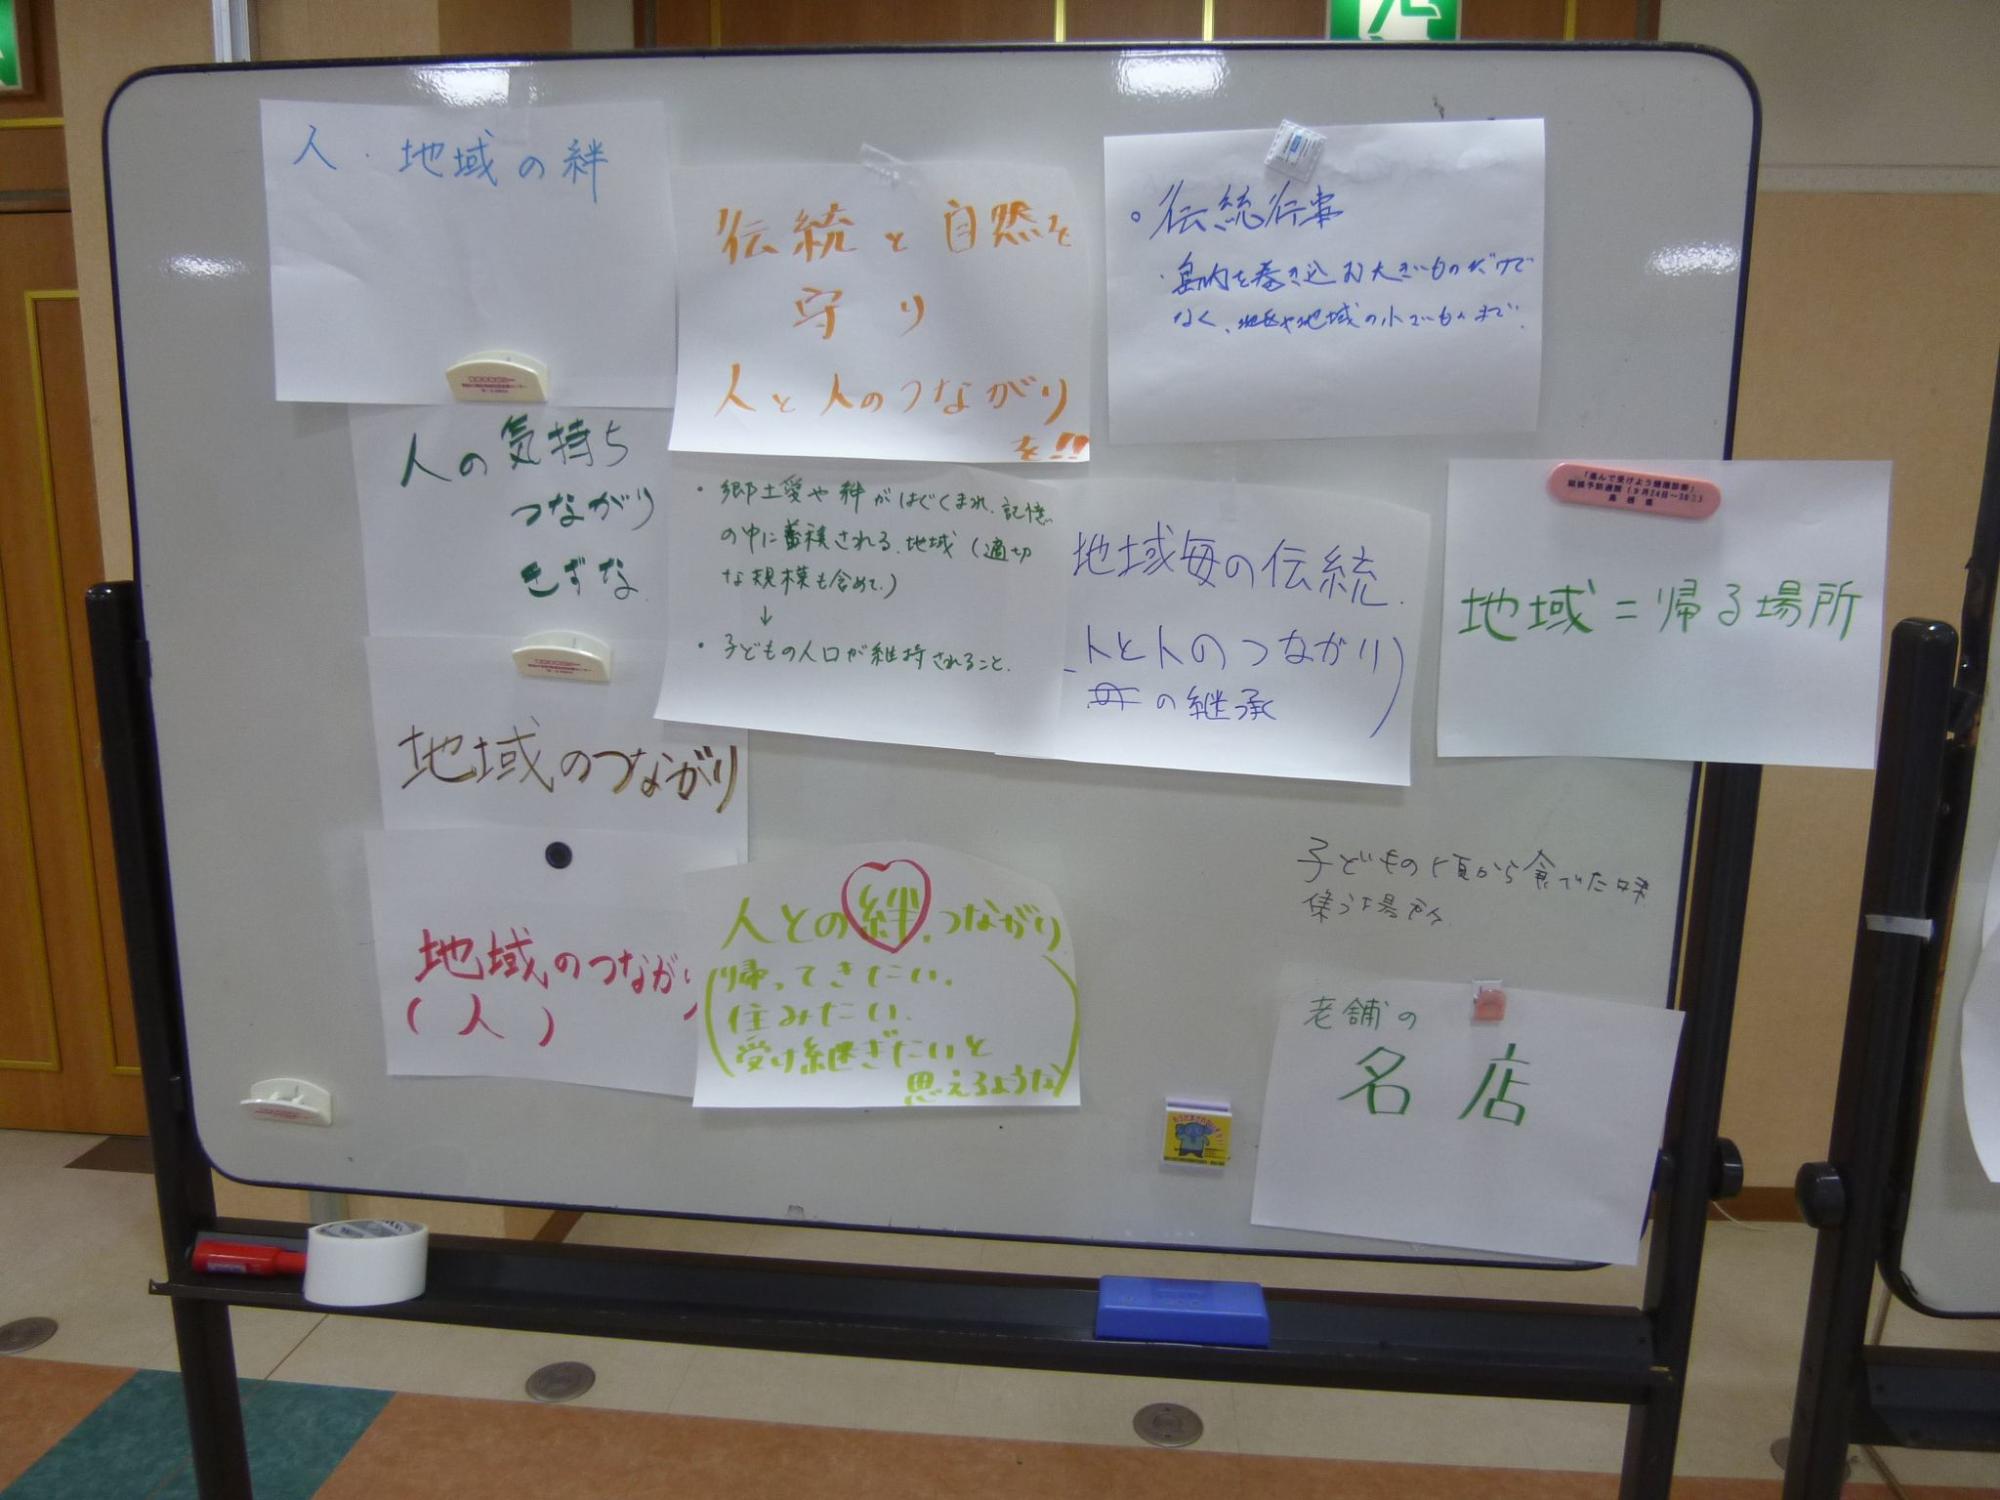 人・地域の絆
伝統と自然を
守り
人と人のつながり
を!!
。伝統行事
・島内を巻き込む大きいものだけで
なく、地区や地域の小さいものまで。
人の気持ち
つながり
きずな
・郷土愛や絆がはぐくまれ、記憶
の中に蓄積される、地域（適切
な規模も含めて。）
↓
・子どもの人口が維持されること。
地域毎の伝統.
人と人のつながり
の継承
「進んで受けよう健康診断」
地域＝帰る場所
地域のつながり
地域のつながり
(人)
人との絆.つながり
(帰ってきたい.
住みたい.
受け継ぎたいと
思えるような)
子どもの頃から食べた味
集う場所
老舗の
名店